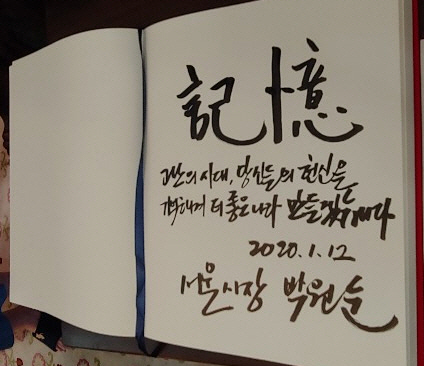 記憶
고난의 시대, 당신들의 헌신을
더 좋은 나라 만들겠습니다
2020.1.12
서울시장 박원순